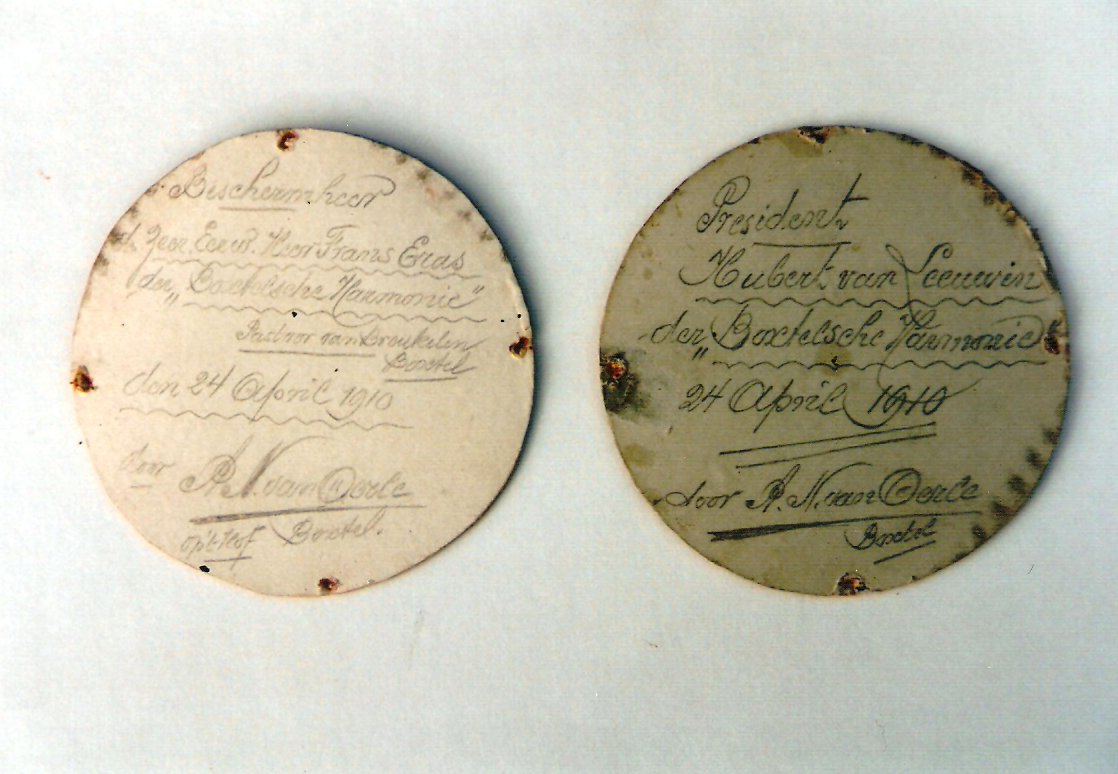 Beschermheer
d. Zeer. Eerw. Heer Frans Eras
der „Boxtelsche Harmonie"
Pastoor van Breukelen
Boxtel
den 24 April 1910
door A. N. van Oerle
op't Hof Boxtel.
President
Hubert van Leeuwen
der „Boxtelsche Harmonie"
24 April 1910
door A. N. van Oerle
Boxtel